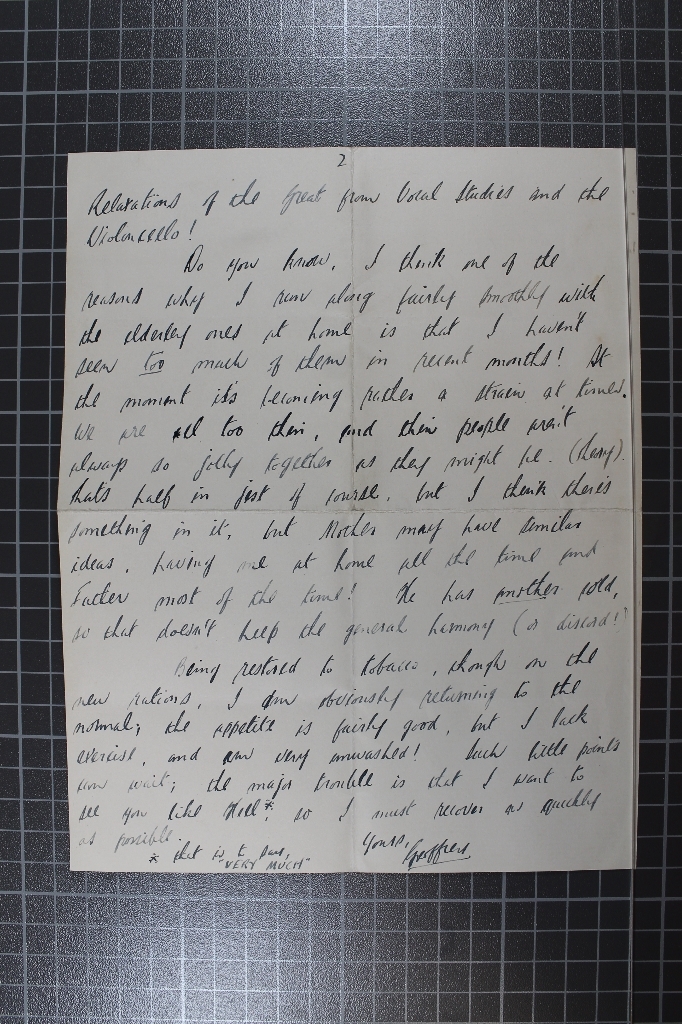 2
Relaxations of the Great from Vocal Studies and the
Violoncello!
Do you know, I think one of the
reasons why I run along fairly smoothly with
the elderly ones at home is that I haven't
seen too much of them in recent months! At
the moment it's becoming rather a strain at times.
We are all too thin, and thin people aren't
always so jolly together as they might be.
that's half in jest of course, but I think there's
something in it, but Mother may have similar
ideas, having me at home all the time and
Father most of the time! He has another cold,
so that doesn't help the general harmony (or discord!)
Being restored to tobacco, though on the
new rations, I am obviously returning to the
normal; the appetite is fairly good, but I lack
exercise, and am very unwashed! Such little points
can wait; the major trouble is that I want to
see you like Hell*, so I must recover as quickly
as possible.
Yours,
Geoffrey
* that is to say,
"VERY MUCH"